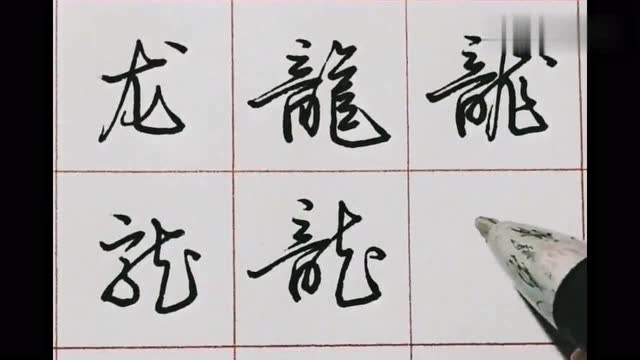 龙 龍 龍
龍 龍